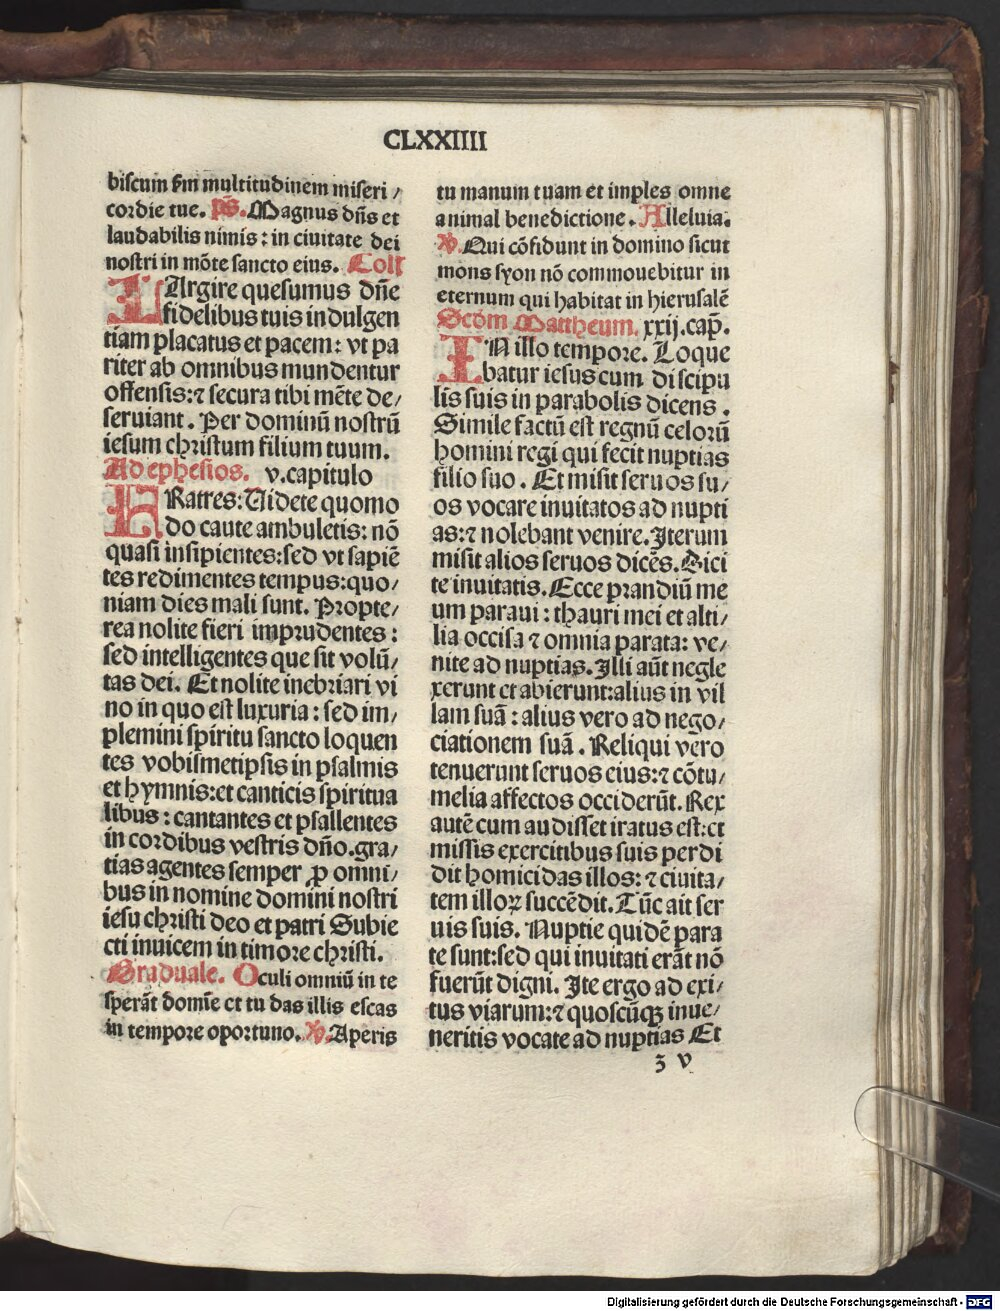 CLXXIIII
biscum ẜm multitudinem miseri /
cordie tue. p̄s. Magnus dn̄s et
laudabilis nimis : in ciuitate dei
nostri in mōte sancto eius. Coll
LArgire quesumus dn̄e
fidelibus tuis indulgen
tiam placatus et pacem: vt pa
riter ab omnibus mundentur
offensis:⁊ secura tibi mēte de/
seruiant. Per dominū nostrū
iesum christum filium tuum.
Ad ephesios. v.capitulo
FRatres: Uidete quomo
do caute ambuletis: nō
quasi insipientes:sed vt sapiē
tes redimentes tempus:quo/
niam dies mali sunt. Propte/
rea nolite fieri imprudentes :
sed intelligentes que sit volū/
tas dei. Et nolite inebriari vi
no in quo est luxuria : sed im/
plemini spiritu sancto loquen
tes vobismetipsis in psalmis
et hymnis:et canticis spiritua
libus : cantantes et psallentes
in cordibus vestris dn̄o.gra/
tias agentes semper ꝓ omni/
bus in nomine domini nostri
iesu christi deo et patri Subie
cti inuicem in timore christi.
Graduale. Oculi omniū in te
sperāt domīe et tu das illis escas
in tempore oportuno. ℣. Aperis
tu manum tuam et imples omne
animal benedictione. Alleluia.
℣. Qui cōfidunt in domino sicut
mons syon nō commouebitur in
eternum qui habitat in hierusalē
Scd̄m Mattheum. xxij.cap̄.
IN illo tempore. Loque
batur iesus cum discipu
lis suis in parabolis dicens .
Simile factū est regnū celorū
homini regi qui fecit nuptias
filio suo . Et misit seruos su/
os vocare inuitatos ad nupti
as:⁊ nolebant venire. Iterum
misit alios seruos dicēs. Dici
te inuitatis. Ecce prandiū me
um paraui : thauri mei et alti/
lia occisa ⁊ omnia parata: ve/
nite ad nuptias. Illi aūt negle
xerunt et abierunt:alius in vil
lam suā : alius vero ad nego/
ciationem suā . Reliqui vero
tenuerunt seruos eius:⁊ cōtu/
melia affectos occiderūt. Rex
autē cum audisset iratus est:et
missis exercitibus suis perdi
dit homicidas illos: ⁊ ciuita/
tem illoꝝ succēdit. Tūc ait ser
uis suis. Nuptie quidē para
te sunt:sed qui inuitati erāt nō
fuerūt digni. Ite ergo ad exi/
tus viarum:⁊ quoscūqꝫ inue/
neritis vocate ad nuptias Et
ʒ v
Digitalisierung gefördert durch die Deutsche Forschungsgemeinschaft - DFG